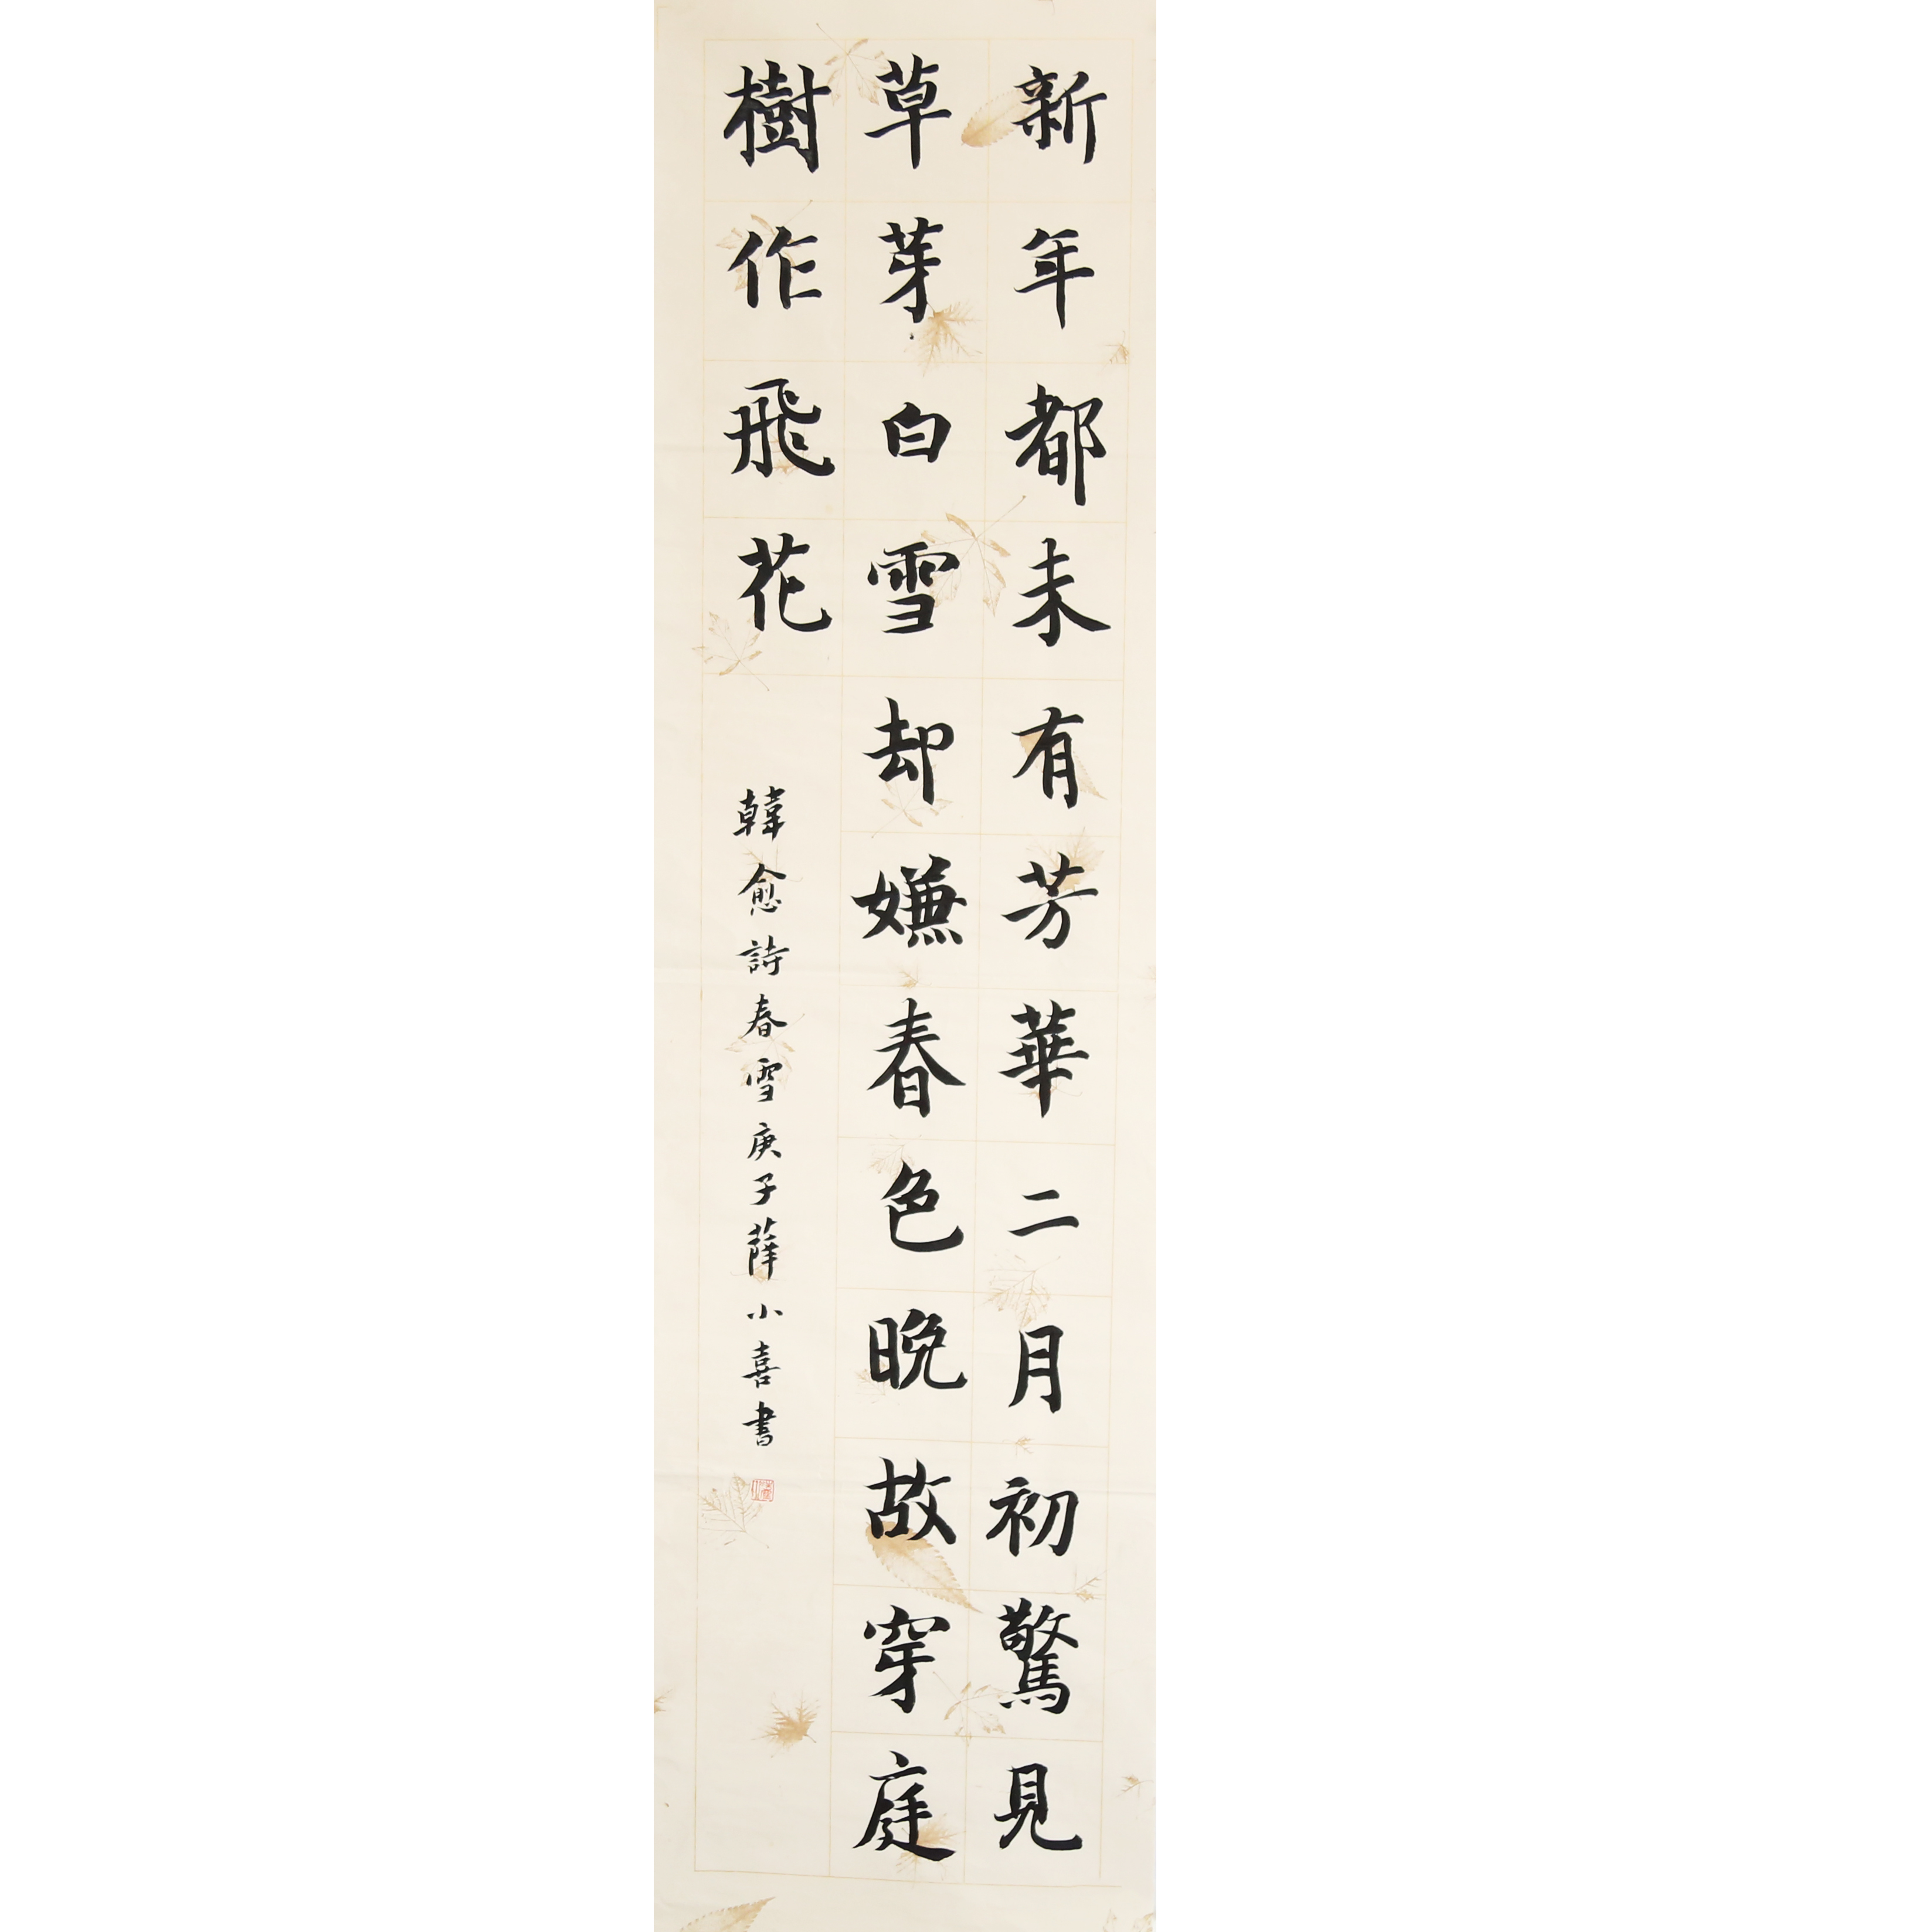 新年都未有芳華二月初驚見
草芽白雪却嫌春色晚故穿庭
樹作飛花
韓愈詩春雪庚子薛小喜書